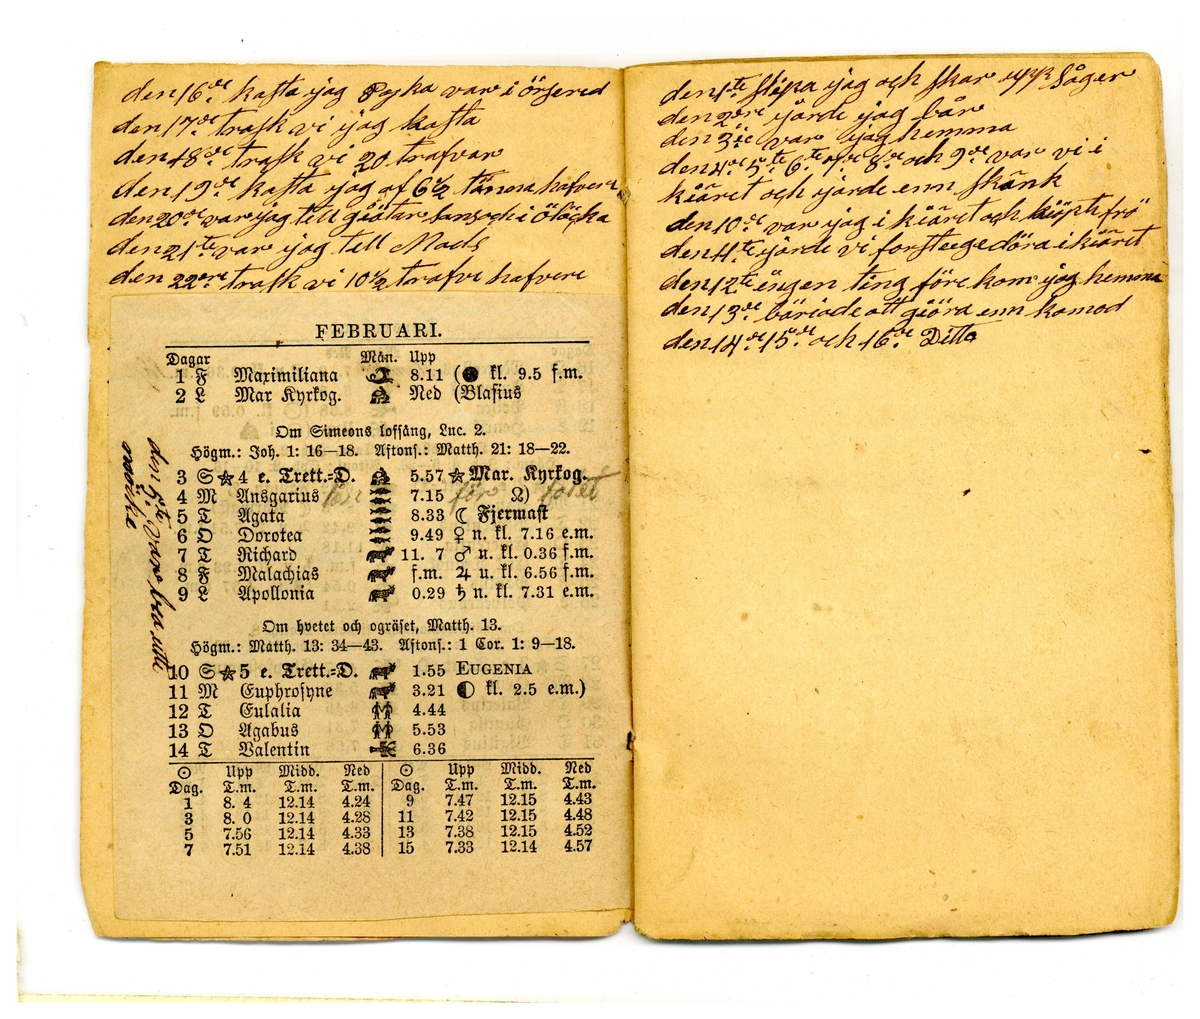 den 16de kasta jag Pojka var i örsered
den 17de trask vi jag kasta
den 18de trask vi 20 trafvar
den 19de kasta jag af 6 1/2 tånna hafvere
den 20de var jag till giötar och i ölåcka
den 21te var jag till Mads
den 22dre trask vi 10 1/2 trafve hafvere
FEBRUARI.
Dagar Mån. Upp
1 F Maximiliana 8.11 (● kl. 9.5 f.m.
2 L Mar Kyrkog. Ned (Blasius
Om Simeons lofsång, Luc. 2.
Högm.: Joh. 1: 16—18. Aftons.: Matth. 21: 18—22.
3 S ☆ 4 e. Trett.=D. 5.57 ☆ Mar. Kyrkog.
4 M Ansgarius 7.15 för ☊)
5 T Agata 8.33 ☾ Fjermast
6 O Dorotea 9.49 ♀ n. kl. 7.16 e.m.
7 T Richard 11. 7 ♂ n. kl. 0.36 f.m.
8 F Malachias f.m. ♃ u. kl. 6.56 f.m.
9 L Apollonia 0.29 ♄ n. kl. 7.31 e.m.
Om hvetet och ogräset, Matth. 13.
Högm.: Matth. 13: 34—43. Aftons.: 1 Cor. 1: 9—18.
10 S ☆ 5 e. Trett.=D. 1.55 EUGENIA
11 M Euphrosyne 3.21 ◐ kl. 2.5 e.m.)
12 T Eulalia 4.44
13 O Agabus 5.53
14 T Valentin 6.36
☉ Upp Midd. Ned ☉ Upp Midd. Ned
Dag. T.m. T.m. T.m. Dag. T.m. T.m. T.m.
1 8. 4 12.14 4.24 9 7.47 12.15 4.43
3 8. 0 12.14 4.28 11 7.42 12.15 4.48
5 7.56 12.14 4.33 13 7.38 12.15 4.52
7 7.51 12.14 4.38 15 7.33 12.14 4.57
den 5te var bra utte
den 1te slipa jag och skar upp Såger
den 2dre jorde jag bår
den 3ie var jag hemma
den 4de 5te 6te 7de 8de och 9de var vi i
kiäret och jorde enn skänk
den 10de var jag i kiäret och kiöpte frö
den 11te jorde vi döra i kiäret
den 12te ingen ting före kom jag hemma
den 13de böriade att giöra enn komod
den 14de 15de och 16de Ditto